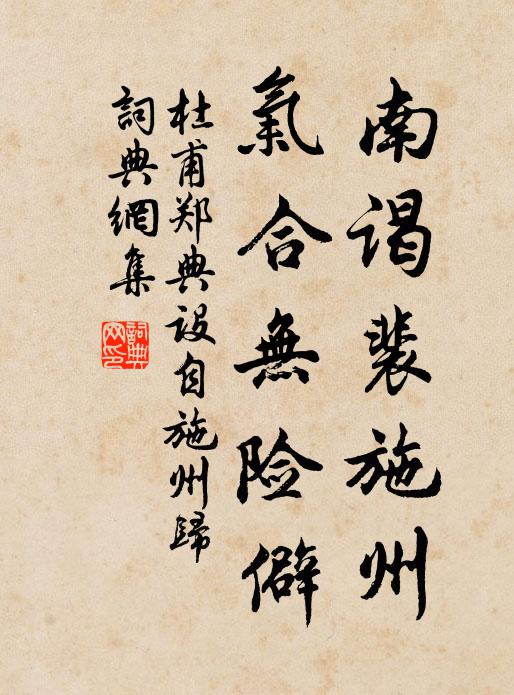 南谒裴施州
氣合無险僻
杜甫郑典设自施州歸
詞典網集
詞典
网印